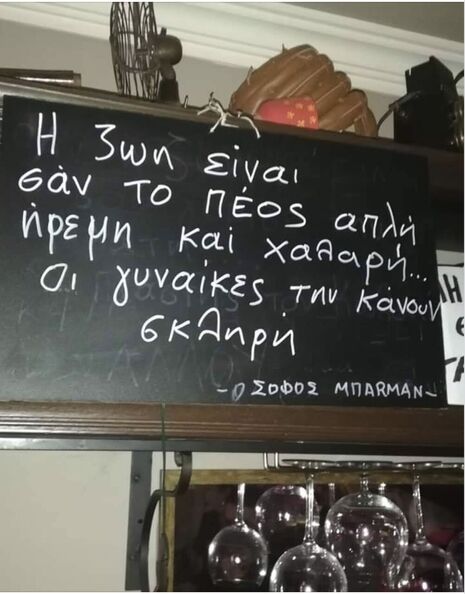 Η ζωη είναι
σάν το πέος απλή
ήρεμη και χαλαρή...
Οι γυναίκες την κάνουν
σκληρή
- Ο ΣΟΦΟΣ ΜΠΑRΜΑΝ -